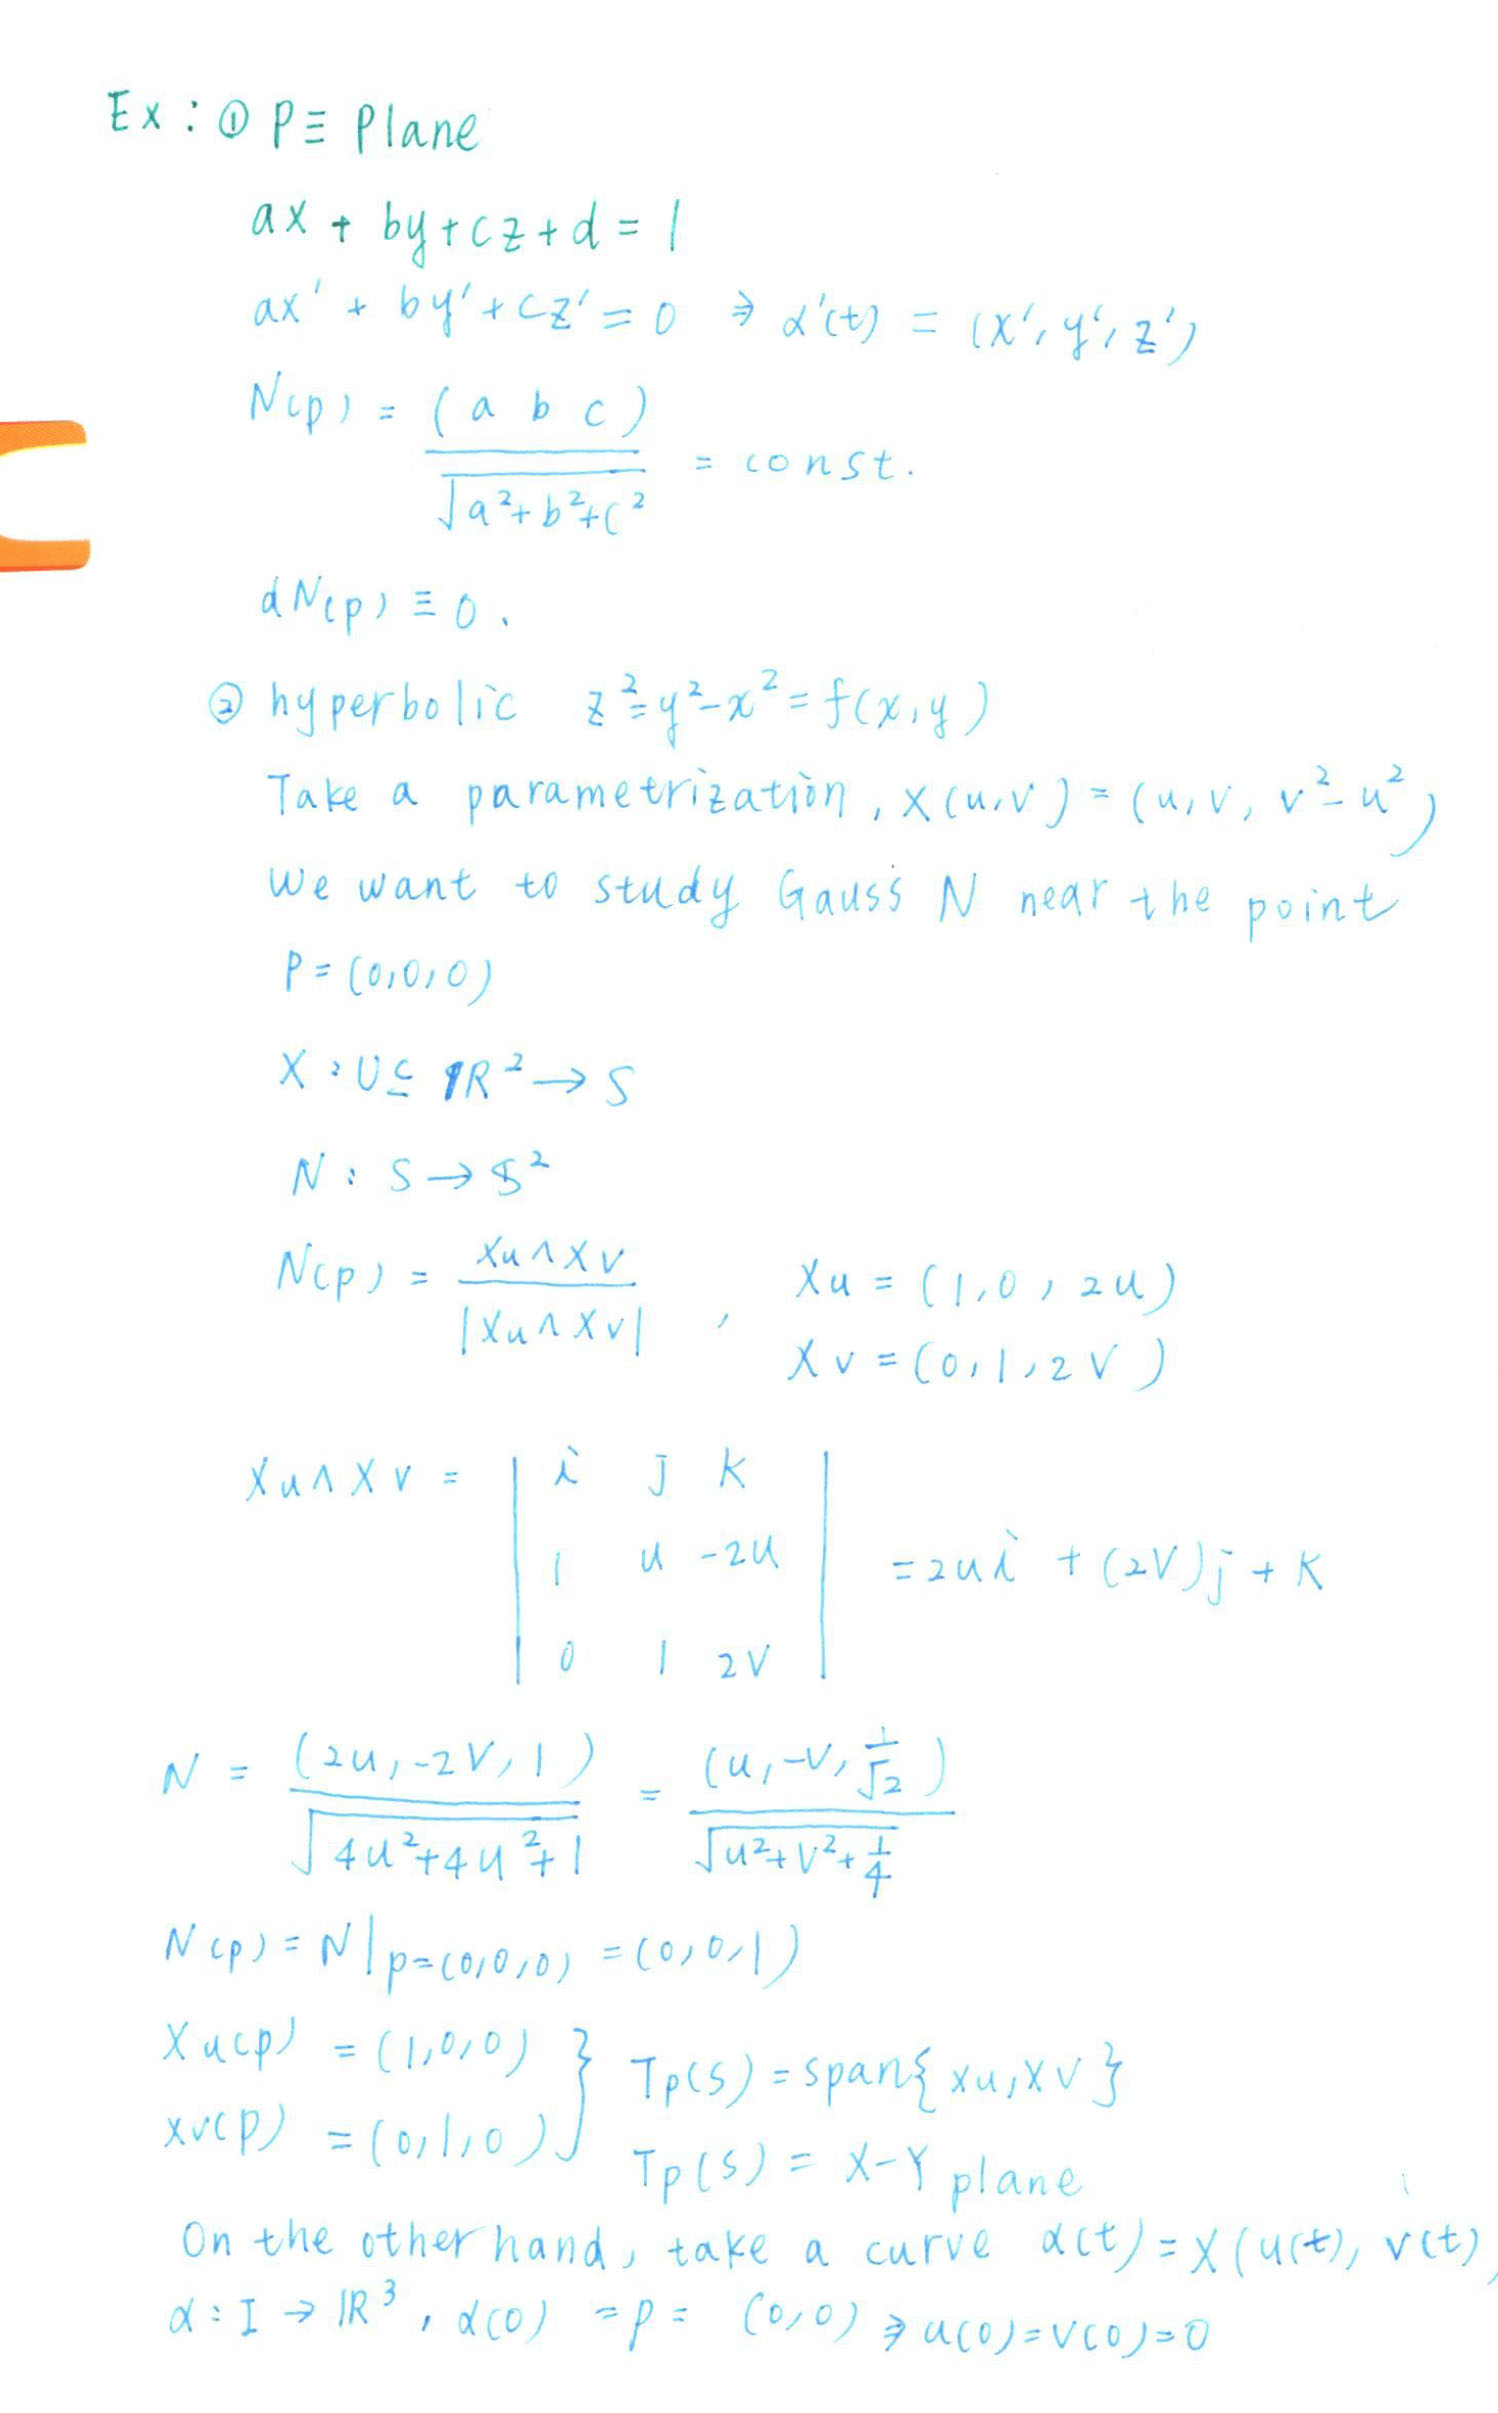 Ex : ① P ≡ Plane
ax + by + cz + d = 1
ax' + by' + cz' = 0 ⇒ α'(t) = (x', y', z')
N(p) = (a b c) / √a²+b²+c² = const.
dN(p) ≡ 0.
② hyperbolic z² = y² - x² = f(x,y)
Take a parametrization, X(u,v) = (u, v, v² - u²)
We want to study Gauss N near the point
P = (0,0,0)
X : U ⊆ ℝ² → S
N : S → 𝕊²
N(p) = Xu ∧ Xv / |Xu ∧ Xv| , Xu = (1, 0, 2u)
Xv = (0, 1, 2v)
Xu ∧ Xv = | i j k |
| 1 u -2u | = 2ui + (2v)j + k
| 0 1 2v |
N = (2u, -2v, 1) / √4u²+4u²+1 = (u, -v, 1/√2) / √u²+v²+1/4
N(p) = N|p=(0,0,0) = (0,0,1)
Xu(p) = (1,0,0) } Tp(S) = span{xu, xv}
xv(p) = (0,1,0) } Tp(S) = X-Y plane
On the other hand, take a curve α(t) = X(u(t), v(t),
α : I → ℝ³, α(0) = p = (0,0) ⇒ u(0) = v(0) = 0